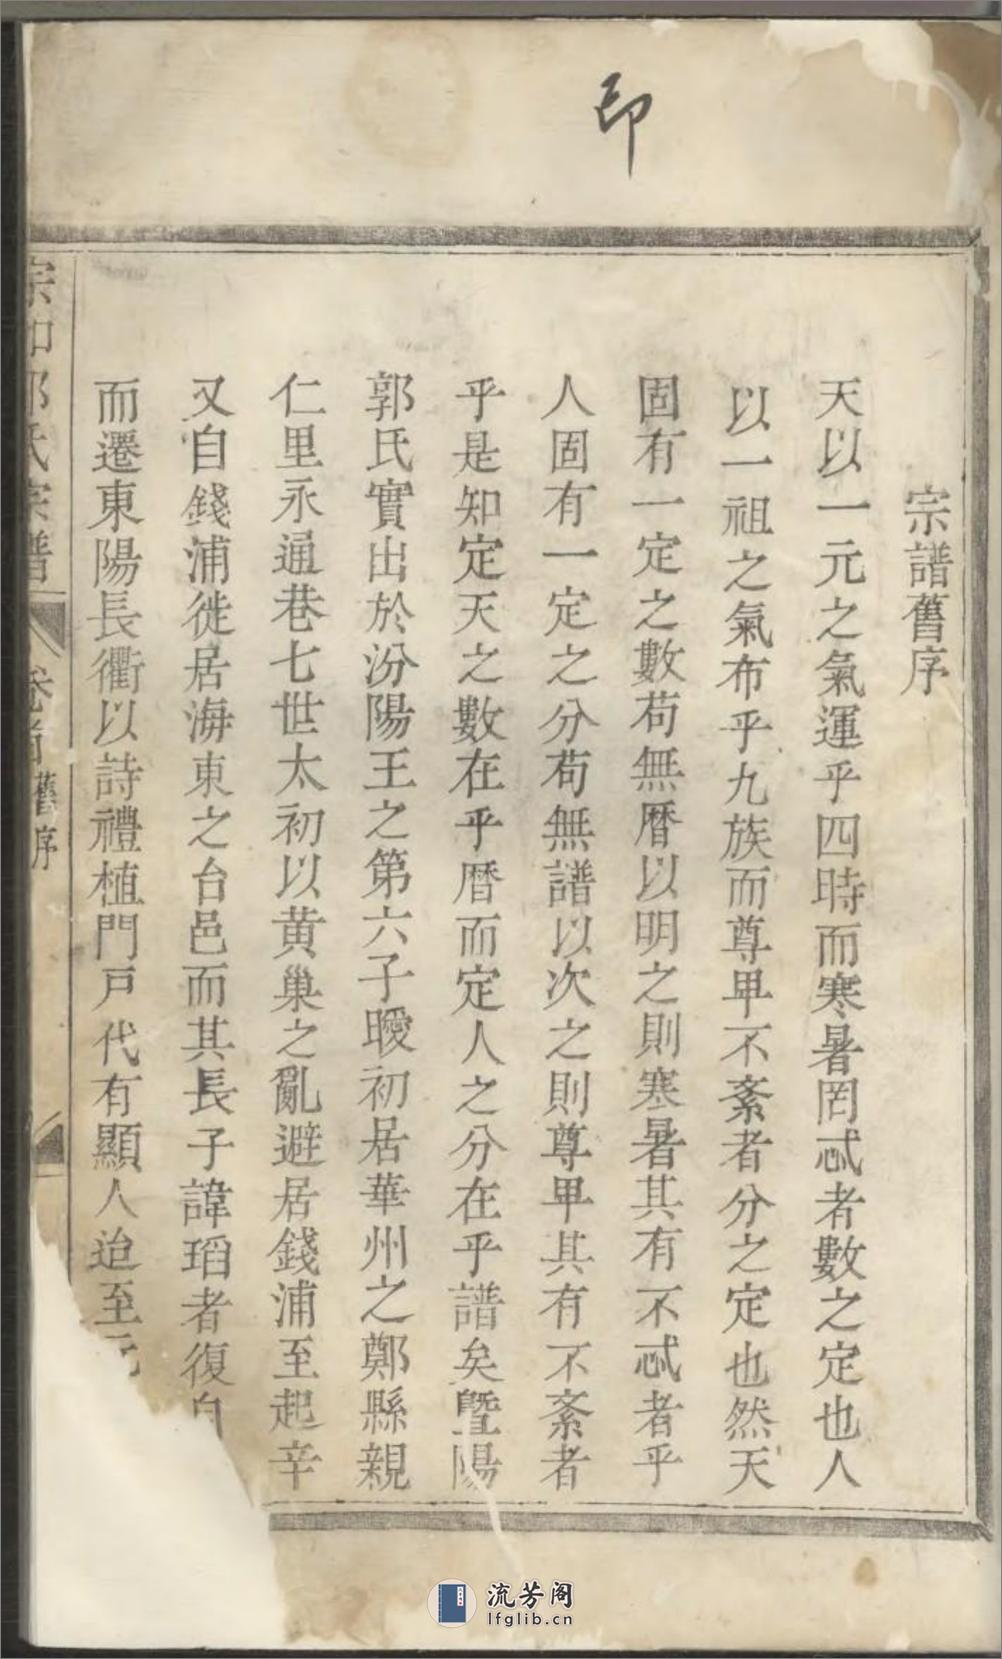 印
宗譜舊序
天以一元之氣運乎四時而寒暑罔忒者數之定也人
以一祖之氣布乎九族而尊卑不紊者分之定也然天
固有一定之數苟無曆以明之則寒暑其有不忒者乎
人固有一定之分苟無譜以次之則尊卑其有不紊者
乎是知定天之數在乎曆而定人之分在乎譜矣暨陽
郭氏實出於汾陽王之第六子曖初居華州之鄭縣親
仁里永通巷七世太初以黄巢之亂避居錢浦至起辛
又自錢浦徙居海東之台邑而其長子諱瑫者復自
而遷東陽長衢以詩禮植門戶代有顯人迨至元
宗和郭氏宗譜 卷首 舊序
流芳阁
lfglib.cn